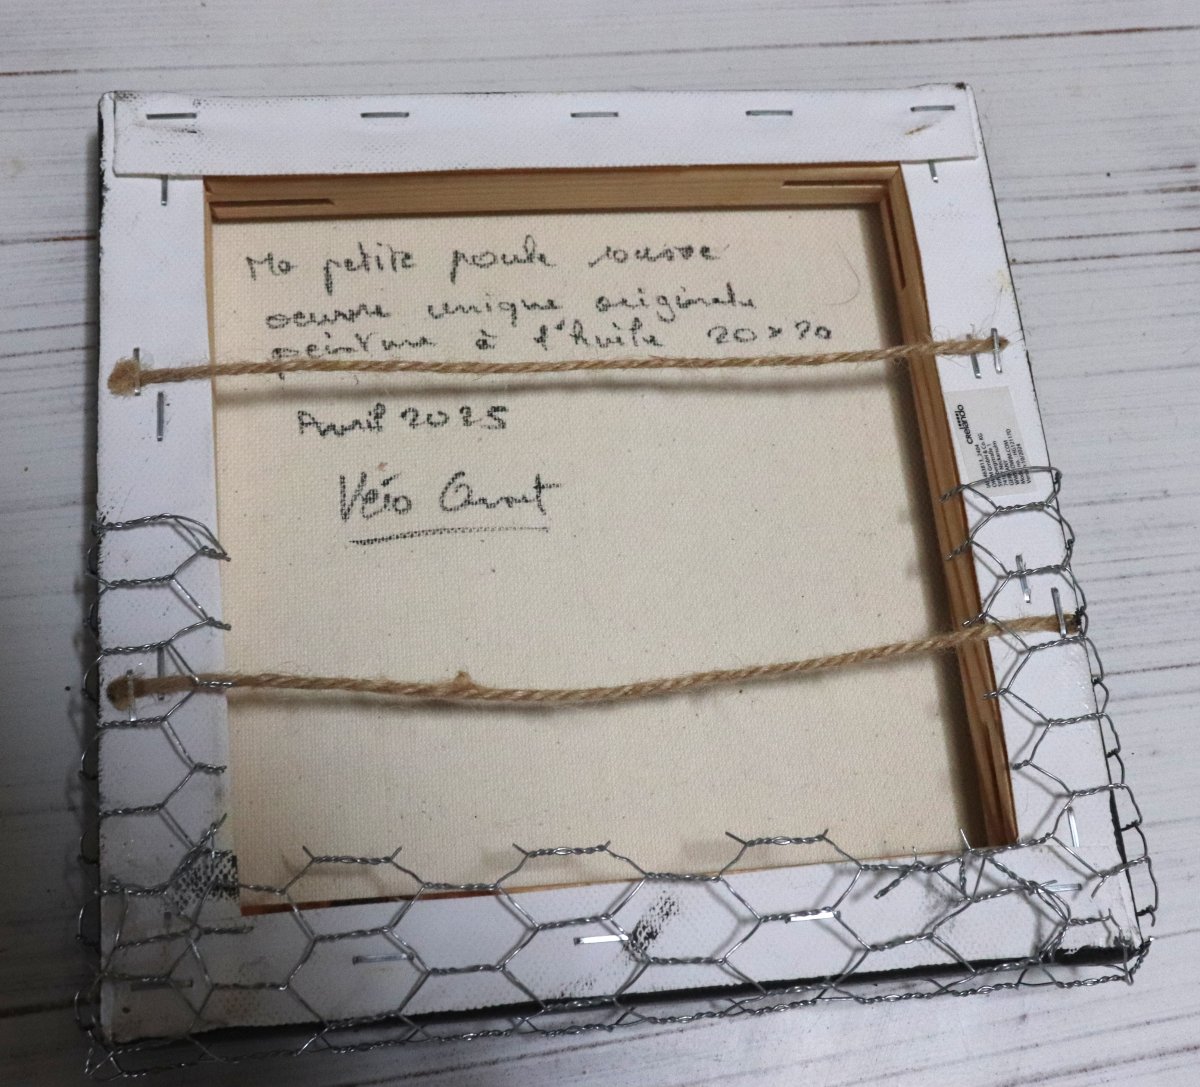 Ma petite poule rousse
oeuvre unique originale
peinture à l'huile 20x20
Avril 2025
Véro
crelando